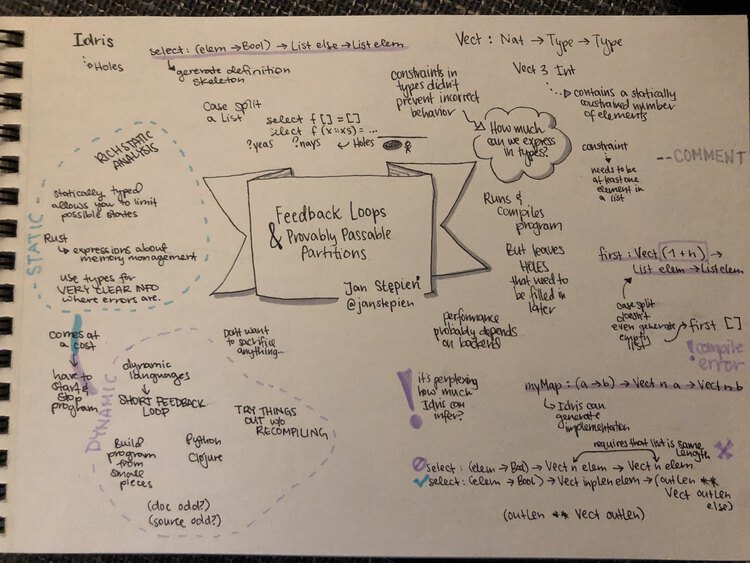 Idris
Holes
select: (elem → Bool) → List else → List elem
generate definition
skeleton
Case split
a List
select f [] = []
select f (x::xs) = ...
?yeas ?nays
Holes
constraints in
types didn't
prevent incorrect
behavior
How much
can we express
in types?
Vect: Nat → Type → Type
Vect 3 Int
contains a statically
constrained number
of elements
constraint
needs to be
at least one
element in
a list
--COMMENT
RICH STATIC
ANALYSIS
statically typed
allows you to limit
possible states
Rust
expressions about
memory management
use types for
VERY CLEAR INFO
where errors are.
STATIC
Feedback Loops
& Provably Passable
Partitions
Jan Stępień
@janstepien
Runs &
compiles
program
But leaves
HOLES
that need to
be filled in
later
performance
probably depends
on backend
first: Vect (1+n) →
List elem → List elem
case split
doesn't
even generate
empty
list
first []
! compile
error
comes at
a cost
have to
start &
stop
program
Don't want
to sacrifice
anything...
DYNAMIC
dynamic
languages
SHORT FEEDBACK
LOOP
TRY THINGS
OUT w/o
RECOMPILING
Build
program
from
small
pieces
Python
Clojure
(doc odd?)
(source odd?)
! it's perplexing
how much
Idris can
infer?
myMap: (a → b) → Vect n a → Vect n b
Idris can
generate
implementation
requires that list is same
length
select: (elem → Bool) → Vect n elem → Vect n elem
select: (elem → Bool) → Vect inplen elem → (outlen **
Vect outlen
else)
(outlen ** Vect outlen)